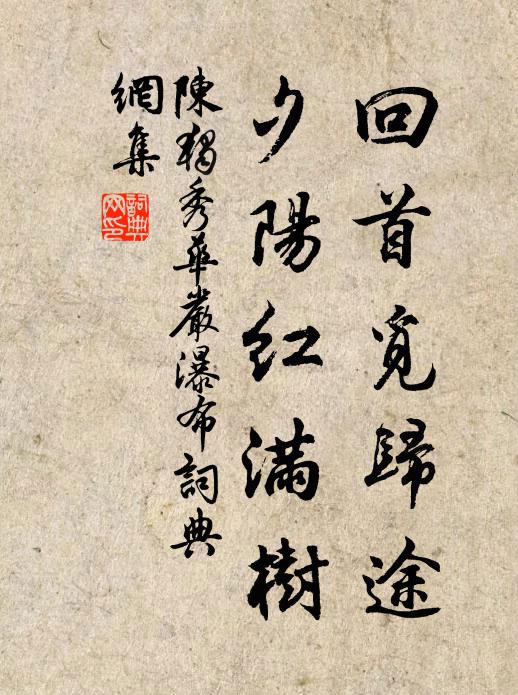 回首覓歸途
夕陽紅滿樹
陳獨秀華嚴瀑布詞典
網集
詞典
网印